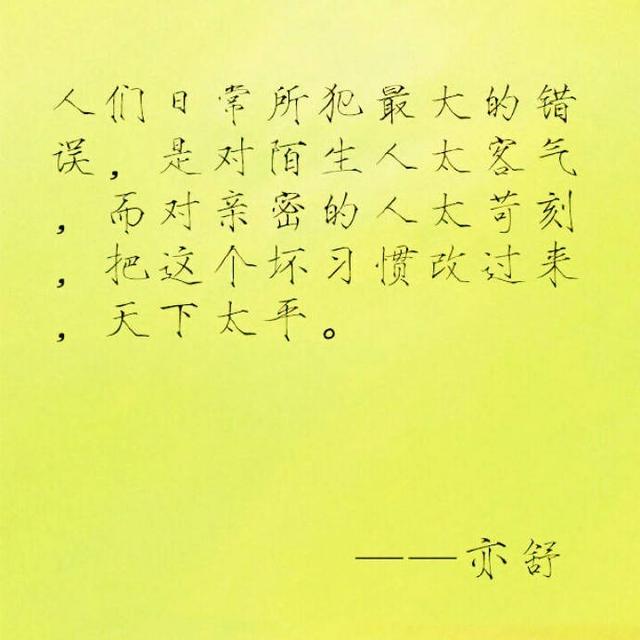 人们日常所犯最大的错
误，是对陌生人太客气
，而对亲密的人太苛刻
，把这个坏习惯改过来
，天下太平。
——亦舒